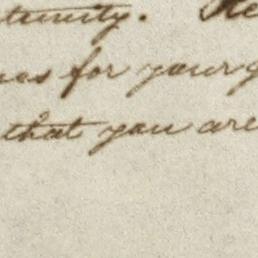 tunity. He
es for your
that you are